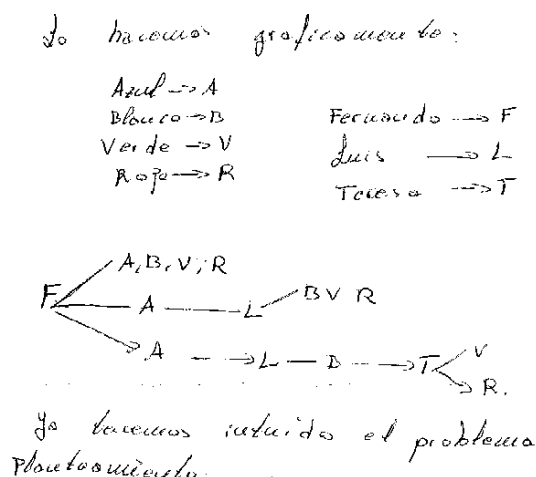 Lo hacemos graficamente:
Azul → A
Blanco → B
Verde → V
Rojo → R
Fernando → F
Luis → L
Teresa → T
A, B, V, R
F A L B V R
A → L — B → T V
R.
Ya tenemos intuido el problema
Planteamiento.